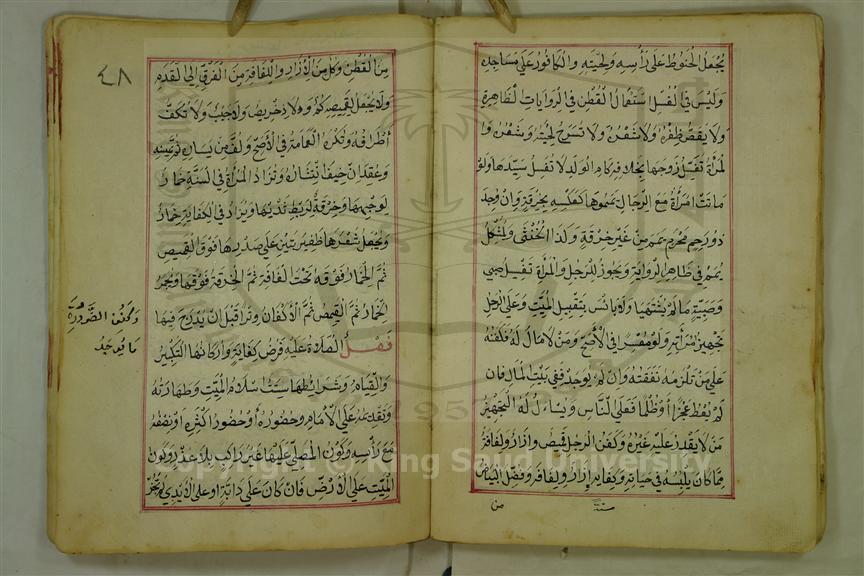 يجعل الحنوط على رأسه ولحيته والكافور على مساجده
وليس في الغسل استعمال القطن في الروايات الظاهرة
ولا يقص ظفره ولا شعره ولا تسرح لحيته وشعره وا
لمرأة تغسل زوجها بخلافه كام الولد لا تغسل سيدها ولو
ماتت امرأة مع الرجال يمموها كعكسه بخرقة وان وجد
ذو رحم محرم يمم من غير خرقة وكذا الخنثى المشكل
يمم في ظاهر الرواية ويجوز للرجل والمرأة تغسيل صبي
وصبية ما لم يشتهيا ولا بأس بتقبيل الميت وعلى الرجل
تجهيز امرأته ولو معسرا في الأصح ومن لا مال له فكفنه
على من تلزمه نفقته وان لم يوجد ففي بيت المال فان
لم يعط عجزا أو ظلما فعلى الناس ويسأل له التجهيز
من لا يقدر عليه غيره وكفن الرجل قميص وازار ولفافة
مما كان يلبسه في حياته وكفاية إزار ولفافة وفضل البياض
من
من القطن وكل من الازار واللفافة من الفرق إلى القدم
ولا يجعل لقميصه كم ولا دخريص ولا جيب ولا تكف
أطرافه وتكره العمامة في الأصح ولف من يساره ثم يمينه
وعقد ان خيف انتشاره وتزاد المرأة في السنة خمار
لوجهها وخرقة لربط ثدييها ويزاد في الكفاية خمار
ويجعل شعرها ظفيرتين على صدرها فوق القميص
ثم الخمار فوقه تحت اللفافة ثم الخرقة فوقها ويجمر
الخمار ثم القميص ثم الأكفان وترا قبل ان يدرج فيها
فصل الصلاة عليه فرض كفاية وأركانها التكبير
والقيام وشرائطها ستة اسلام الميت وطهارته
وتقدمه على الامام وحضوره أو حضور اكثره او نصفه
مع رأسه وكون المصلي عليها غير راكب بلا عذر وكون
الميت على الأرض فان كان على دابة او على الأيدي لم يجز
٤٨
وكفن الضرورة
ما يوجد
Copyright © King Saud University
1957